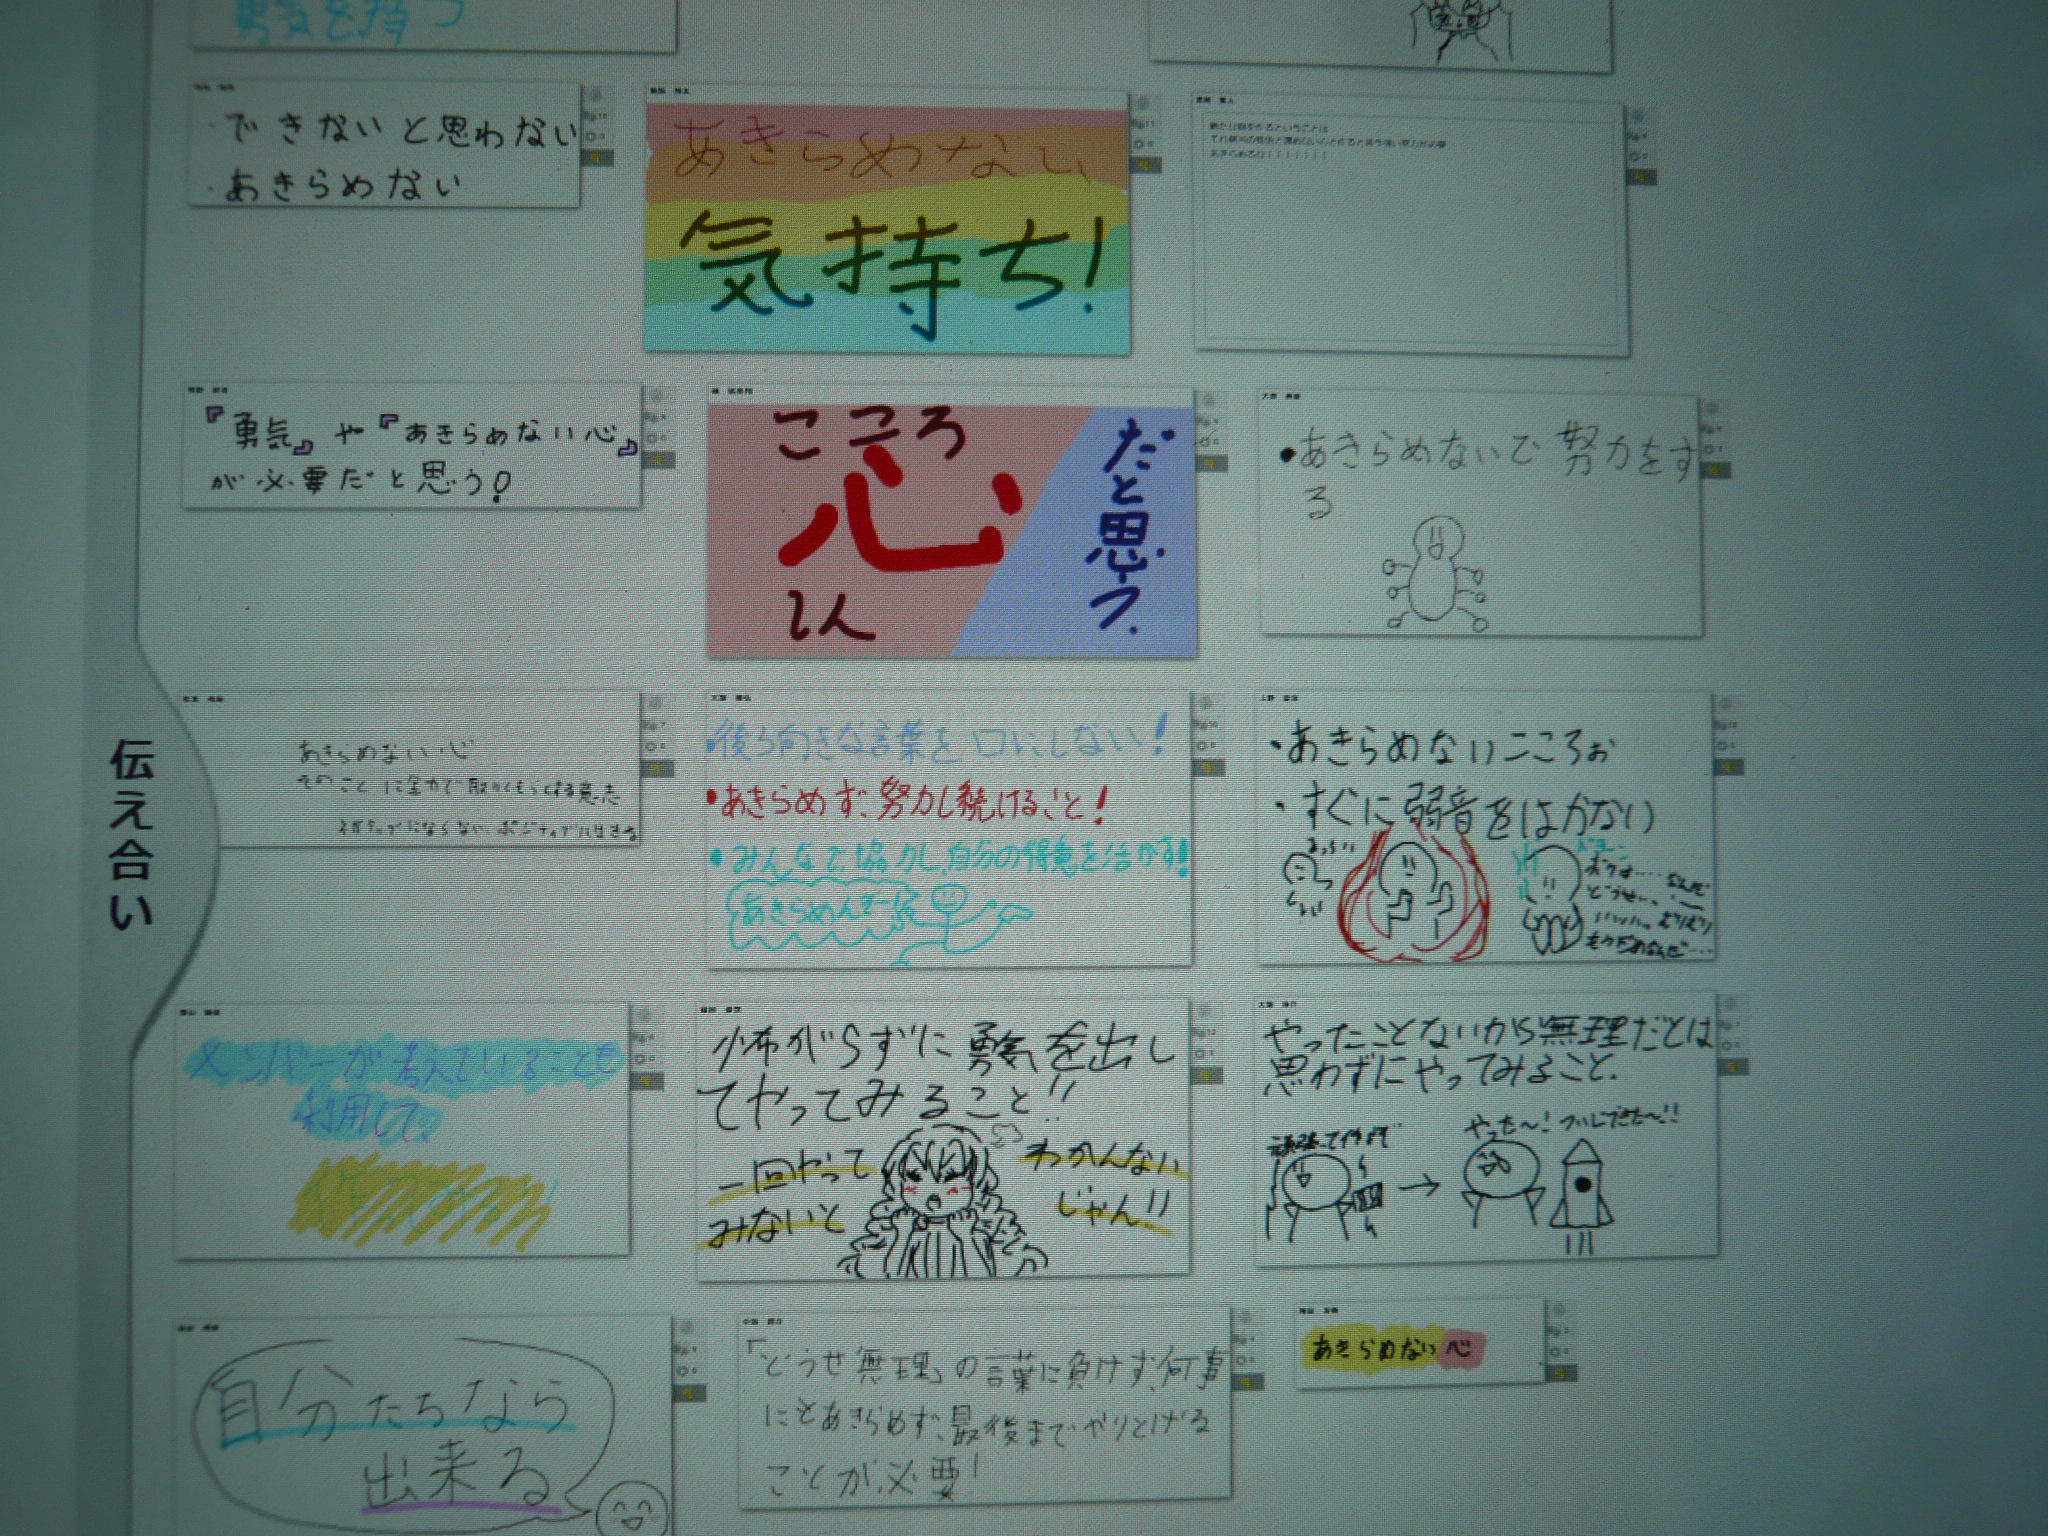 勇気を持つ
・できないと思わない
・あきらめない
あきらめない
気持ち!
『勇気』や『あきらめない心』
が必要だと思う!
こころ
心
しん
だと思う.
・あきらめないで努力をす
る
伝え合い
あきらめない心
そのことに全力で取りくもうとする意志
ネガティブにならない、ポジティブに生きる
・後ろ向きな言葉を口にしない!
・あきらめず、努力し続けること!
・みんなで協力し、自分の得意を活かす!
あきらめんぞー
・あきらめないこころぉ
・すぐに弱音をはかない
メンバーが考えていることも
利用して。
怖がらずに勇気を出し
てやってみること!!
一回やって
みないと
わかんない
じゃん!!
やったことないから無理だとは
思わずにやってみること.
やった〜!ついにできた〜!!
自分たちなら
出来る
「どうせ無理」の言葉に負けず、何事
にもあきらめず、最後までやりとげる
ことが必要!
あきらめない心